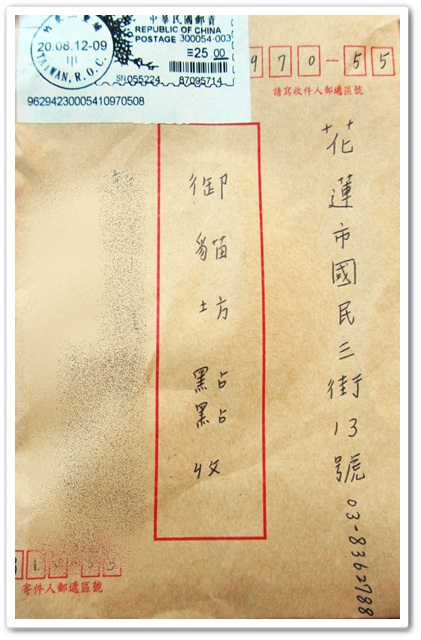 中華民國郵資
REPUBLIC OF CHINA
POSTAGE 300054-003
25 00
SN055224 87095714
20.08.12-09
TAIWAN, R.O.C.
96294230005410970508
970-55
請寫收件人郵遞區號
花蓮市國民三街13號 03-8362788
御貓坊 點點 收
寄件人郵遞區號